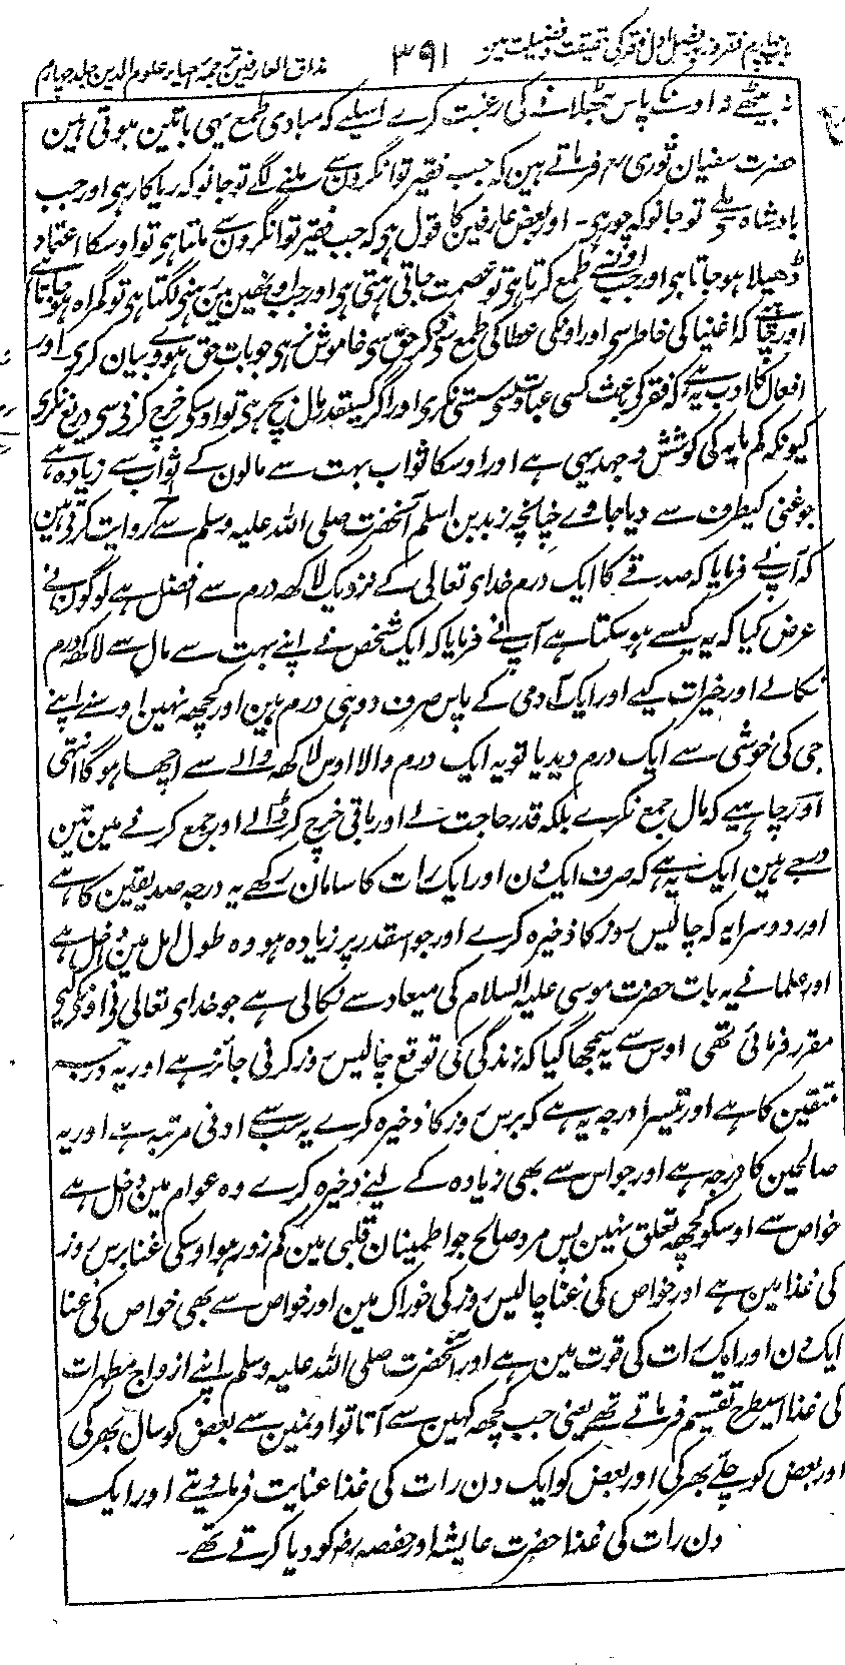 باب چہارم فقر و زہد فصل اول فقر کی حقیقت و فضیلت میں ۳۹۱ مذاق العارفین ترجمہ احیاء علوم الدین جلد چہارم
نہ بیٹھے نہ اونکے پاس بٹھلانے کی رغبت کرے اسلیے کہ مبادی طمع یہی باتین ہوتی ہین
حضرت سفیان ثوری رح فرماتے ہین کہ جب فقیر توانگرون سے ملنے لگے تو جانو کہ ریاکار ہی اور جب
بادشاہ سے ملے تو جانو کہ چور ہی۔ اور بعض عارفین کا قول ہی کہ جب فقیر توانگرون سے ملتا ہی تو اوسکا اعتماد
ڈھیلا ہو جاتا ہی اور جب اونسے طمع کرتا ہی تو عصمت جاتی رہتی ہی اور جب اونھین مین رہنے لگتا ہی تو گمراہ ہو جاتا ہے
اور چاہیے کہ اغنیا کی خاطر سی اور اونکی عطا کی طمع سی ذکر حق سی خاموش نرہی جو بات حق ہو وہ بیان کری اور
افعال کا ادب یہ ہے کہ فقر کی باعث کسی عبادت سی سستی نکری اور اگر کسیقدر مال بچ رہی تو اوسکی خرچ کرنی سی دریغ نکری
کیونکہ کم مایہ کی کوشش و جہد یہی ہے اور اوسکا ثواب بہت سے مالون کے ثواب سے زیادہ ہے
جو غنی کیطرف سے دیا جاوے چنانچہ زید بن اسلم آنحضرت صلی اللہ علیہ وسلم سے روایت کرتی ہین
کہ آپ نے فرمایا کہ صدقے کا ایک درم خدای تعالی کے نزدیک لاکھ درم سے افضل ہے لوگون نے
عرض کیا کہ یہ کیسے ہو سکتا ہے آپ نے فرمایا کہ ایک شخص نے اپنے بہت سے مال سے لاکھ درم
نکالے اور خیرات کیے اور ایک آدمی کے پاس صرف دو ہی درم ہین اور کچھ نہین اوسنے اپنے
جی کی خوشی سے ایک درم دیدیا تو یہ ایک درم والا اوس لاکھ والے سے اچھا ہوگا انتہی
اور چاہیے کہ مال جمع نکرے بلکہ قدر حاجت لے اور باقی خرچ کر ڈالے اور جمع کرنے مین تین
درجے ہین ایک یہ ہے کہ صرف ایک دن اور ایک رات کا سامان رکھے یہ درجہ صدیقین کا ہے
اور دوسرا یہ کہ چالیس روز کا ذخیرہ کرے اور جو اسقدر پر زیادہ ہو وہ طول امل مین داخل ہے
اور علما نے یہ بات حضرت موسی علیہ السلام کی میعاد سے نکالی ہے جو خدای تعالی نی اونکے لیے
مقرر فرمائی تھی اوس سے یہ سمجھا گیا کہ زندگی کی توقع چالیس روز کرنی جائز ہے اور یہ درجہ
متقین کا ہے اور تیسرا درجہ یہ ہے کہ برس روز کا ذخیرہ کرے یہ سب سے ادنی مرتبہ ہے اور یہ
صالحین کا درجہ ہے اور جو اس سے بھی زیادہ کے لیے ذخیرہ کرے وہ عوام مین داخل ہے
خواص سے اوسکو کچھ تعلق نہین پس مرد صالح جو اطمینان قلبی مین کمزور ہو اوسکی غنا برس روز
کی غذا مین ہے اور خواص کی غنا چالیس روز کی خوراک مین اور خواص سے بھی خواص کی غنا
ایک دن اور ایک رات کی قوت مین ہے اور آنحضرت صلی اللہ علیہ وسلم اپنے ازواج مطہرات
کی غذا اسیطرح تقسیم فرماتے تھے یعنی جب کچھ کہین سے آتا تو اونمین سے بعض کو سال بھر کی
اور بعض کو چلے بھر کی اور بعض کو ایک دن رات کی غذا عنایت فرما دیتے اور ایک
دن رات کی غذا حضرت عایشہ اور حفصہ رض کو دیا کرتے تھے۔